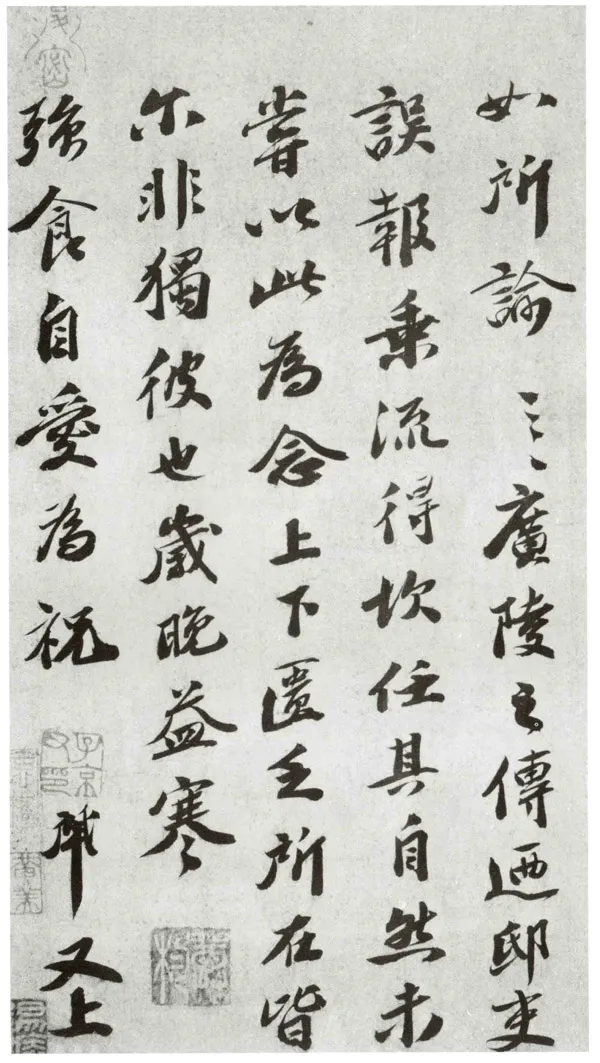 如所諭三三廣陵之傳迺邸吏
誤報乘流得坎任其自然未
嘗以此為念上下匱乏所在皆
尔非獨彼也歲晚益寒
強食自愛為祝 軾又上